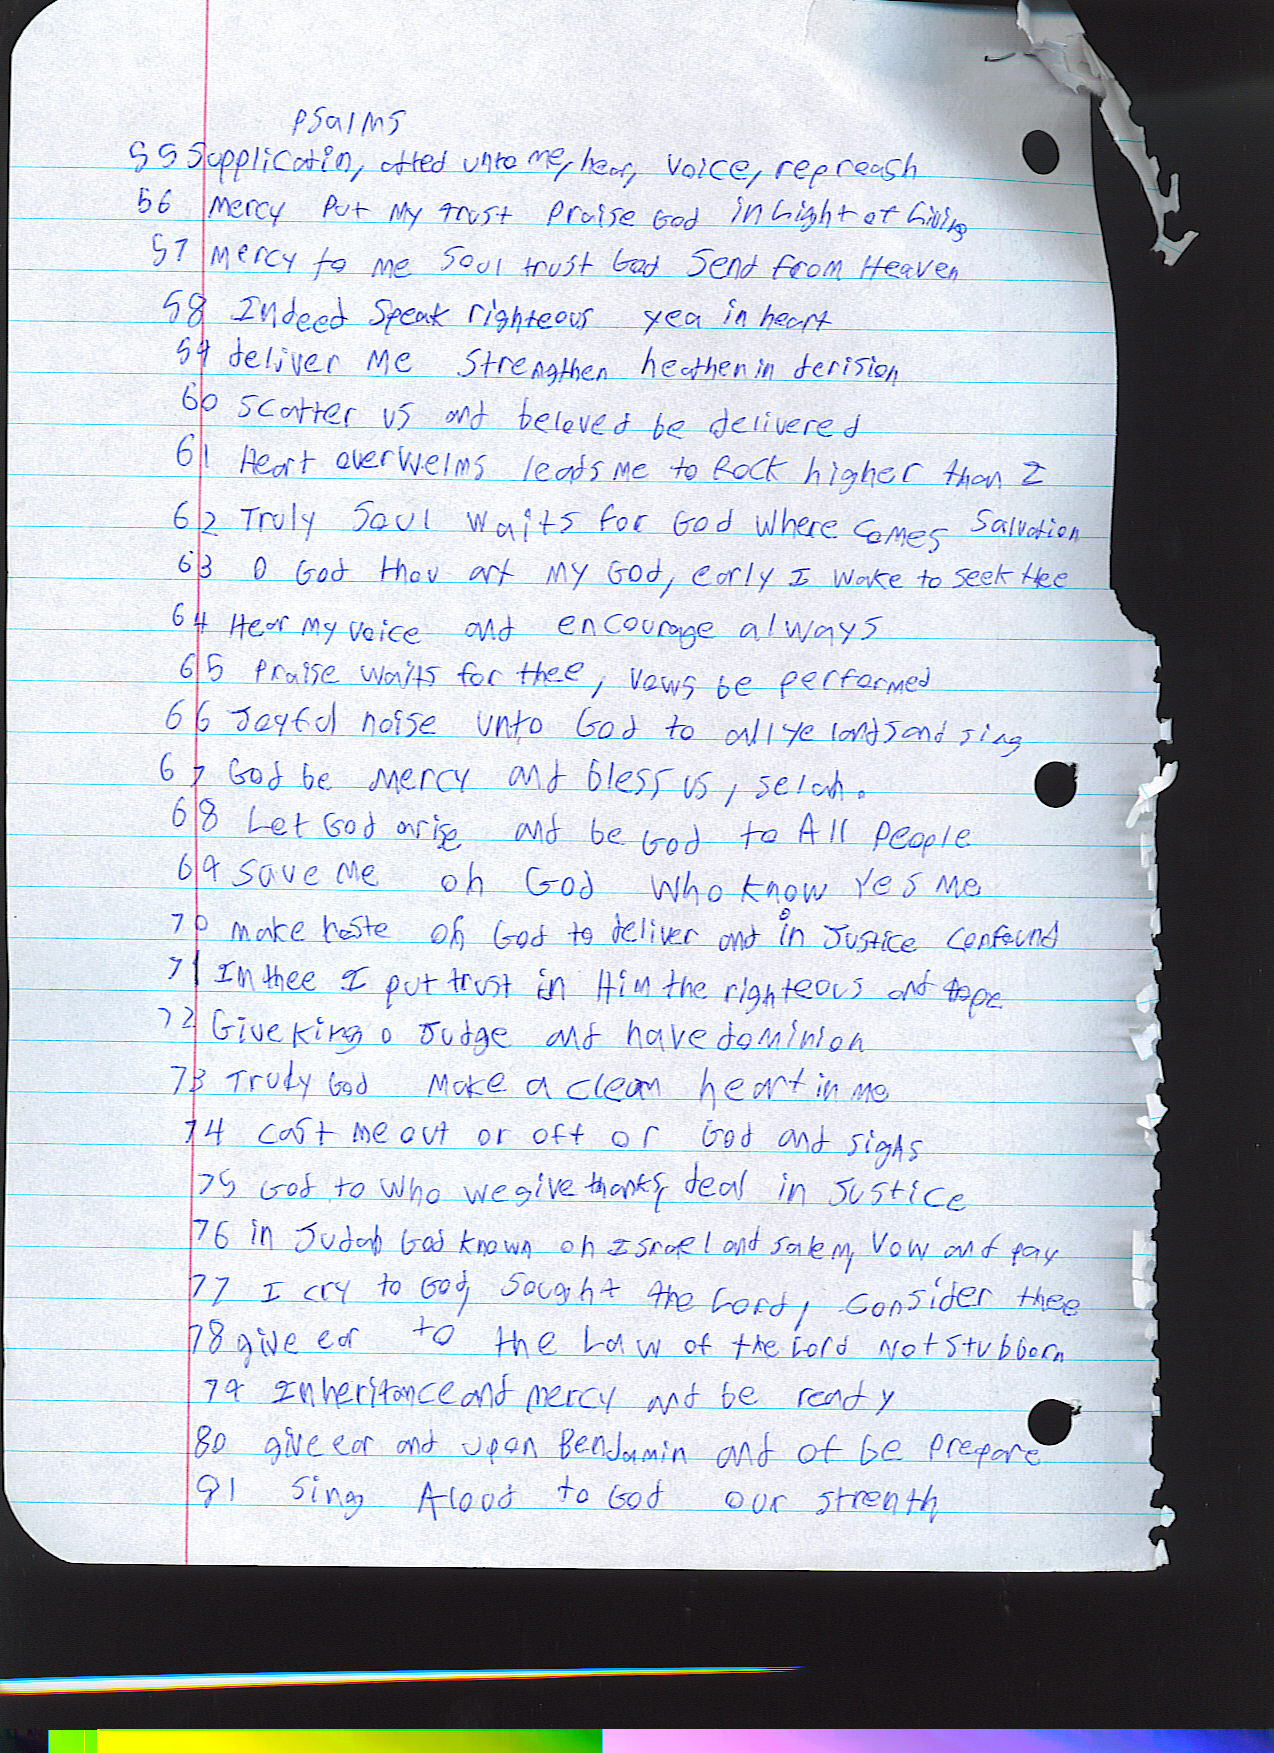 Psalms
55 Supplicatin, atted unto me, hear, voice, repreash
56 Mercy Put My trust Praise God in Light of Living
57 Mercy to me Soul trust God Send from Heaven
58 Indeed Speak righteous yea in heart
59 deliver Me Strengthen heathen in derision
60 Scatter us and beloved be delivered
61 Heart overwelms leads me to Rock higher than I
62 Truly Soul waits for God where comes Salvation
63 O God thou art My God, early I wake to seek thee
64 Hear My voice and encourage always
65 Praise waits for thee, vows be performed
66 Joyful noise unto God to all ye lands and sing
67 God be Mercy and bless us, selah.
68 Let God arise and be God to All People
69 Save Me oh God who know Yes Me
70 Make haste oh God to deliver and in Justice Confound
71 In thee I put trust in Him the righteous and hope
72 Give King o Judge and have dominion
73 Truly God Make a clean heart in me
74 Cast me out or off or God and sighs
75 God to who we give thanks, deal in Justice
76 in Judah God known oh Israel and salem, Vow and pay
77 I cry to God, Sought the Lord, Consider thee
78 give ear to the Law of the Lord Not Stubborn
79 Inheritance and mercy and be ready
80 give ear and upon Bendamin and of be prepare
81 Sing Aloud to God our strenth